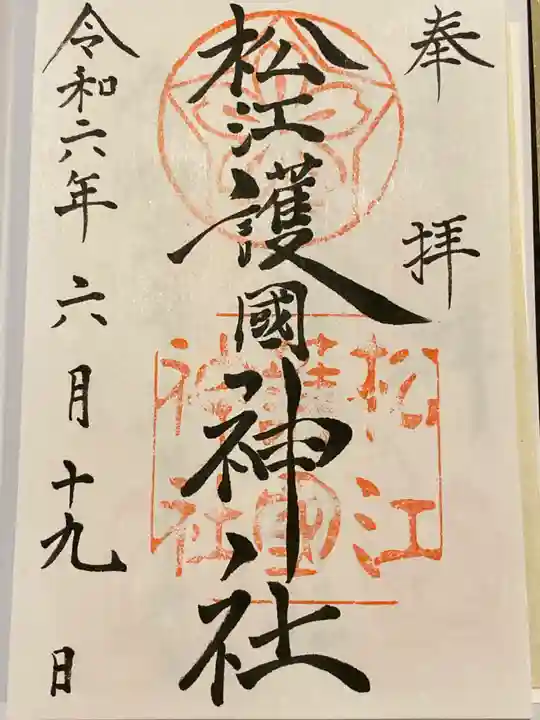 奉拝
松江護國神社
松江
護國
神社
令和六年六月十九日